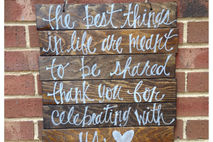 the best things
in life are meant
to be shared
thank you for
celebrating with
us!